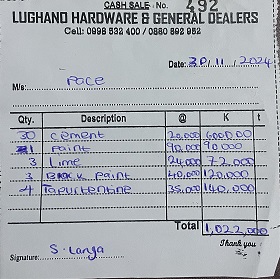 CASH SALE No. 492
LUGHAND HARDWARE & GENERAL DEALERS
Cell: 0998 632 400 / 0880 892 952
Date: 20/11/2024
M/s: FOCE
Qty. Description @ K t
30 Cement 20,000 600000
1 Paint 90,000 90 000
3 Lime 24,000 72,000
3 Black Paint 40,000 120,000
4 Tapurtentine 35,000 140,000
Total 1,022,000
Thank you
Signature: S. Langa